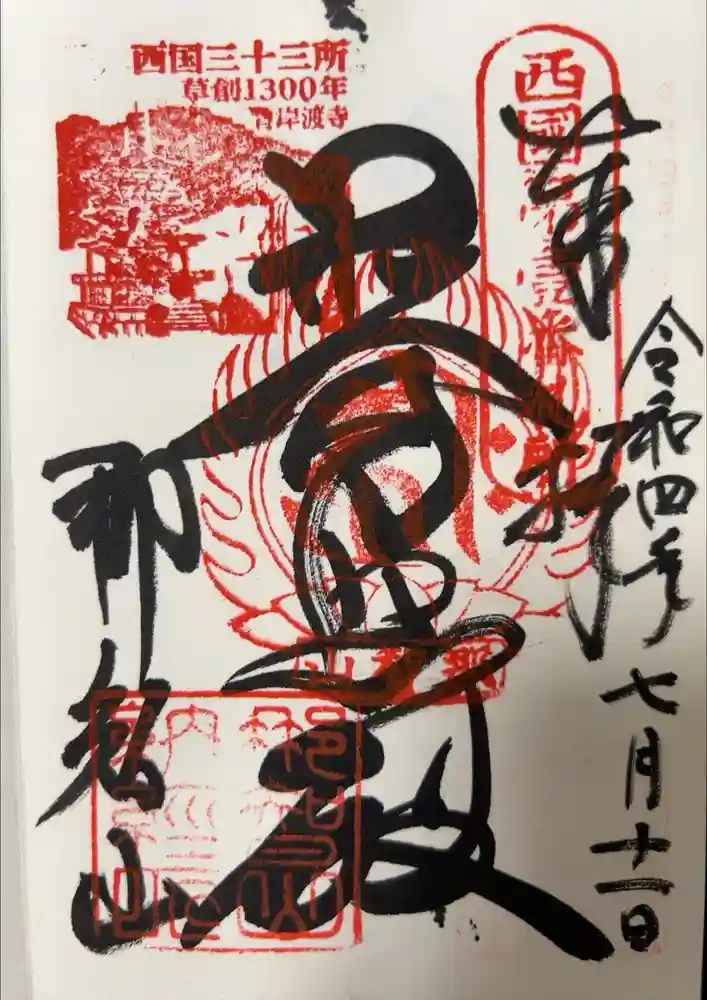 西国三十三所
草創1300年
青岸渡寺
奉拝
令和四年七月十一日
普照殿
那智山
那智山
西國